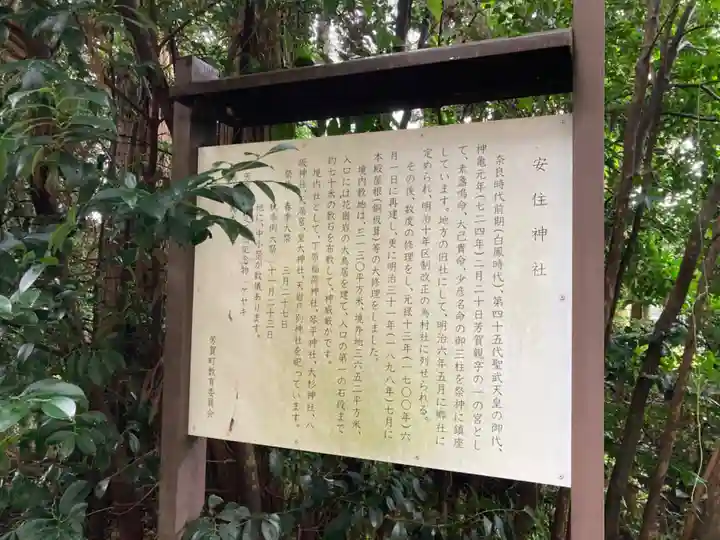 安住神社
奈良時代前期(白鳳時代)、第四十五代聖武天皇の御代、
神亀元年(七二四年)二月二十日芳賀親字の一の宮とし
て、素盞嗚命、大己貴命、少彦名命の御三柱を祭神に鎮座
しています。地方の旧社にして、明治六年五月に郷社に
定められ、明治十年区制改正の為村社に列せられる。
その後、数度の修理をし、元禄十三年(一七〇〇年)六
月一日に再建し、更に明治三十一年(一八九八年)七月に
本殿屋根(銅板葺)等の大修理をしました。
境内敷地は、三一三〇平方米、境外地三六五二平方米、
入口には花崗岩の大鳥居を建て、入口の第一の石段まで
約七十米の敷石を布敷して、神威厳かです。
境内社として、丁原稲荷神社、琴平神社、大杉神社、八
坂神社、皇大神社、天岩戸別神社を祀っています。
祭 春季大祭 三月二十七日
秋季例大祭 十一月二十三日
他に、中小祭が数儀あります。
記念物 ケヤキ
芳賀町教育委員会